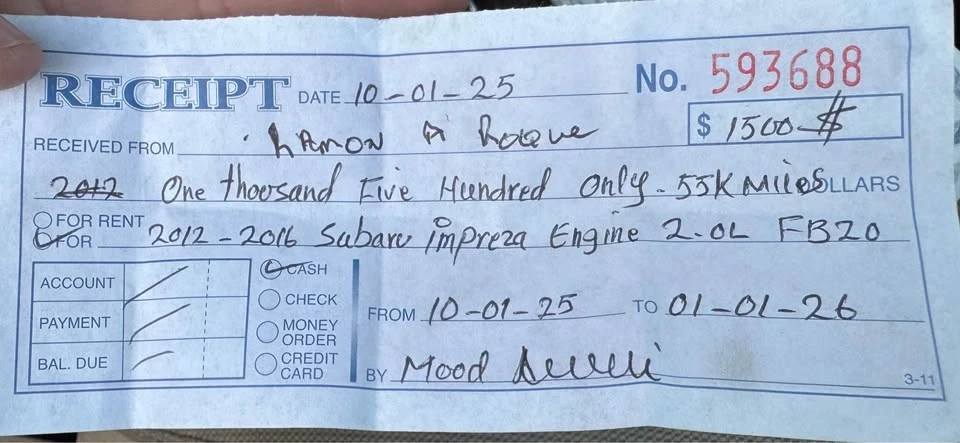 RECEIPT DATE 10-01-25 No. 593688
RECEIVED FROM Ramon A Roque $ 1500 $
2012 One thousand Five Hundred Only - 55K Miles DOLLARS
FOR RENT
FOR 2012-2016 Subaru impreza Engine 2.0L FB20
ACCOUNT
PAYMENT
BAL. DUE
CASH
CHECK
MONEY ORDER
CREDIT CARD
FROM 10-01-25 TO 01-01-26
BY Mood
3-11